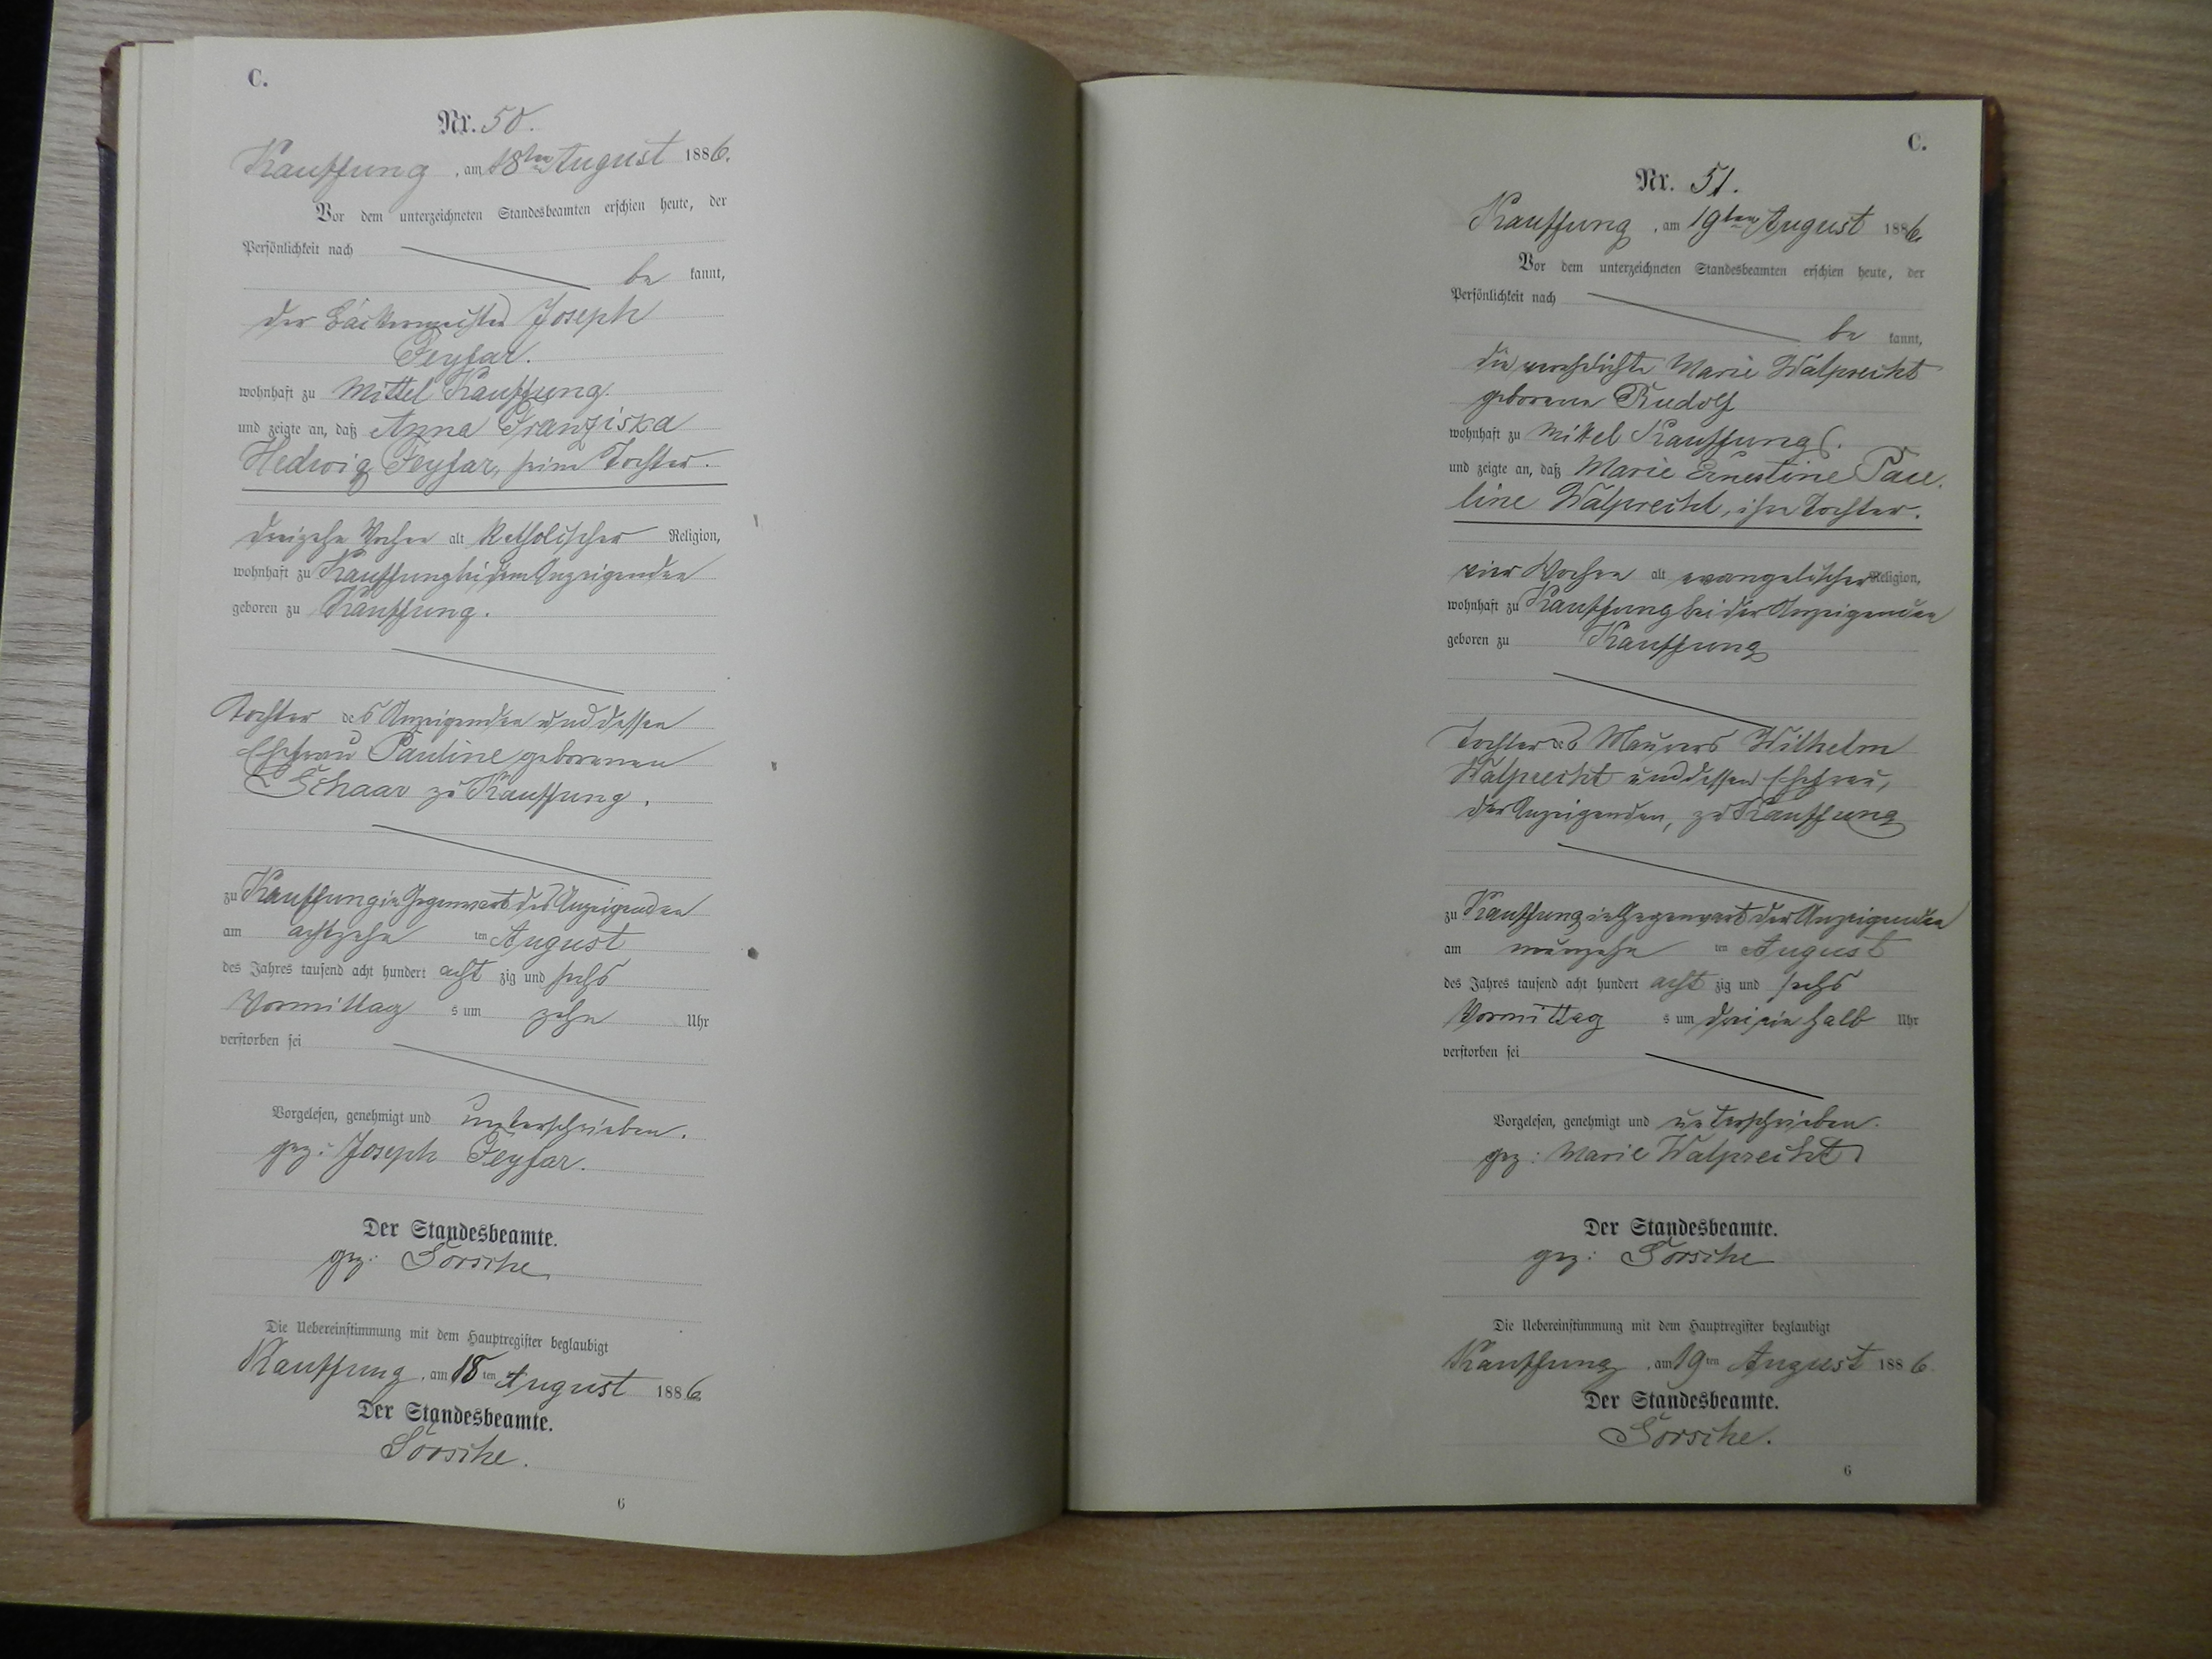 C.
Nr. 50.
Kauffung, am 18ten August 1886.
Vor dem unterzeichneten Standesbeamten erschien heute, der
Persönlichkeit nach
be kannt,
der Bäckermeister Joseph
Feyfar.
wohnhaft zu Mittel Kauffung.
und zeigte an, daß Anna Franziska
Hedwig Feyfar, seine Tochter.
dreizehn Wochen alt katholischer Religion,
wohnhaft zu Kauffung bei dem Anzeigenden
geboren zu Kauffung.
Tochter des Anzeigenden und dessen
Ehefrau Pauline geborenen
Schaar zu Kauffung.
zu Kauffung in Gegenwart des Anzeigenden
am achtzehn ten August
des Jahres tausend acht hundert acht zig und sechs
Vormittag s um zehn Uhr
verstorben sei
Vorgelesen, genehmigt und unterschrieben.
gez: Joseph Feyfar.
Der Standesbeamte.
gez: Sorsche
Die Uebereinstimmung mit dem Hauptregister beglaubigt
Kauffung, am 18ten August 1886
Der Standesbeamte.
Sorsche.
6
C.
Nr. 51.
Kauffung, am 19ten August 1886.
Vor dem unterzeichneten Standesbeamten erschien heute, der
Persönlichkeit nach
be kannt,
die verehelichte Marie Walprecht
geborene Rudolf
wohnhaft zu Mittel Kauffung.
und zeigte an, daß Marie Ernestine Pau-
line Walprecht, ihre Tochter.
vier Wochen alt evangelischer Religion,
wohnhaft zu Kauffung bei der Anzeigenden
geboren zu Kauffung
Tochter des Maurers Wilhelm
Walprecht und dessen Ehefrau,
der Anzeigenden, zu Kauffung
zu Kauffung in Gegenwart der Anzeigenden
am neunzehn ten August
des Jahres tausend acht hundert acht zig und sechs
Vormittag s um drei ein halb Uhr
verstorben sei
Vorgelesen, genehmigt und unterschrieben.
gez: Marie Walprecht
Der Standesbeamte.
gez: Sorsche
Die Uebereinstimmung mit dem Hauptregister beglaubigt
Kauffung, am 19ten August 1886
Der Standesbeamte.
Sorsche.
6